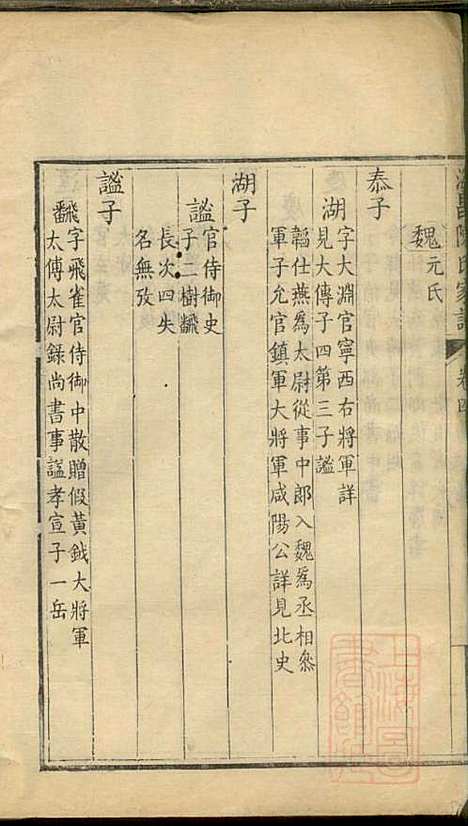 陳氏家譜 卷四
魏元氏
泰子
湖
字大淵官寧西右將軍詳
見大傳子四第三子謐
韜仕燕爲太尉從事中郎入魏爲丞相叅
軍子允官鎮軍大將軍咸陽公詳見北史
湖子
謐
官侍御史
子二樹飜
長次四失
名無攷
謐子
飜
字飛雀官侍御中散贈假黃鉞大將軍
太傅太尉錄尚書事謐孝宣子一岳